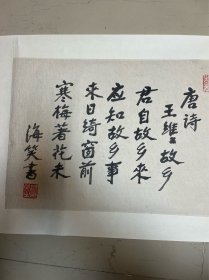 唐诗
王维 故乡
君自故乡来
应知故乡事
来日绮窗前
寒梅著花未
海笑书